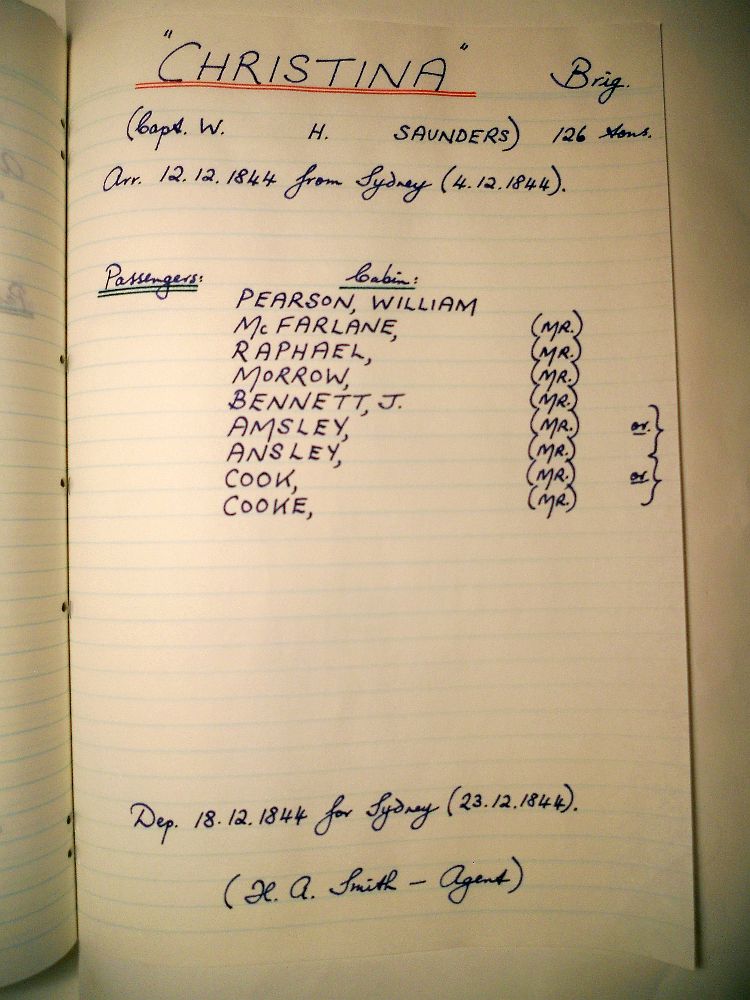 "CHRISTINA" Brig.
(Capt. W. H. SAUNDERS) 126 tons.
Arr. 12.12.1844 from Sydney (4.12.1844).
Passengers: Cabin:
PEARSON, WILLIAM
McFARLANE, (MR.)
RAPHAEL, (MR.)
MORROW, (MR.)
BENNETT, J. (MR.)
AMSLEY, (MR.) or }
ANSLEY, (MR.)
COOK, (MR.) or }
COOKE, (MR.)
Dep. 18.12.1844 for Sydney (23.12.1844).
(H. A. Smith - Agent)